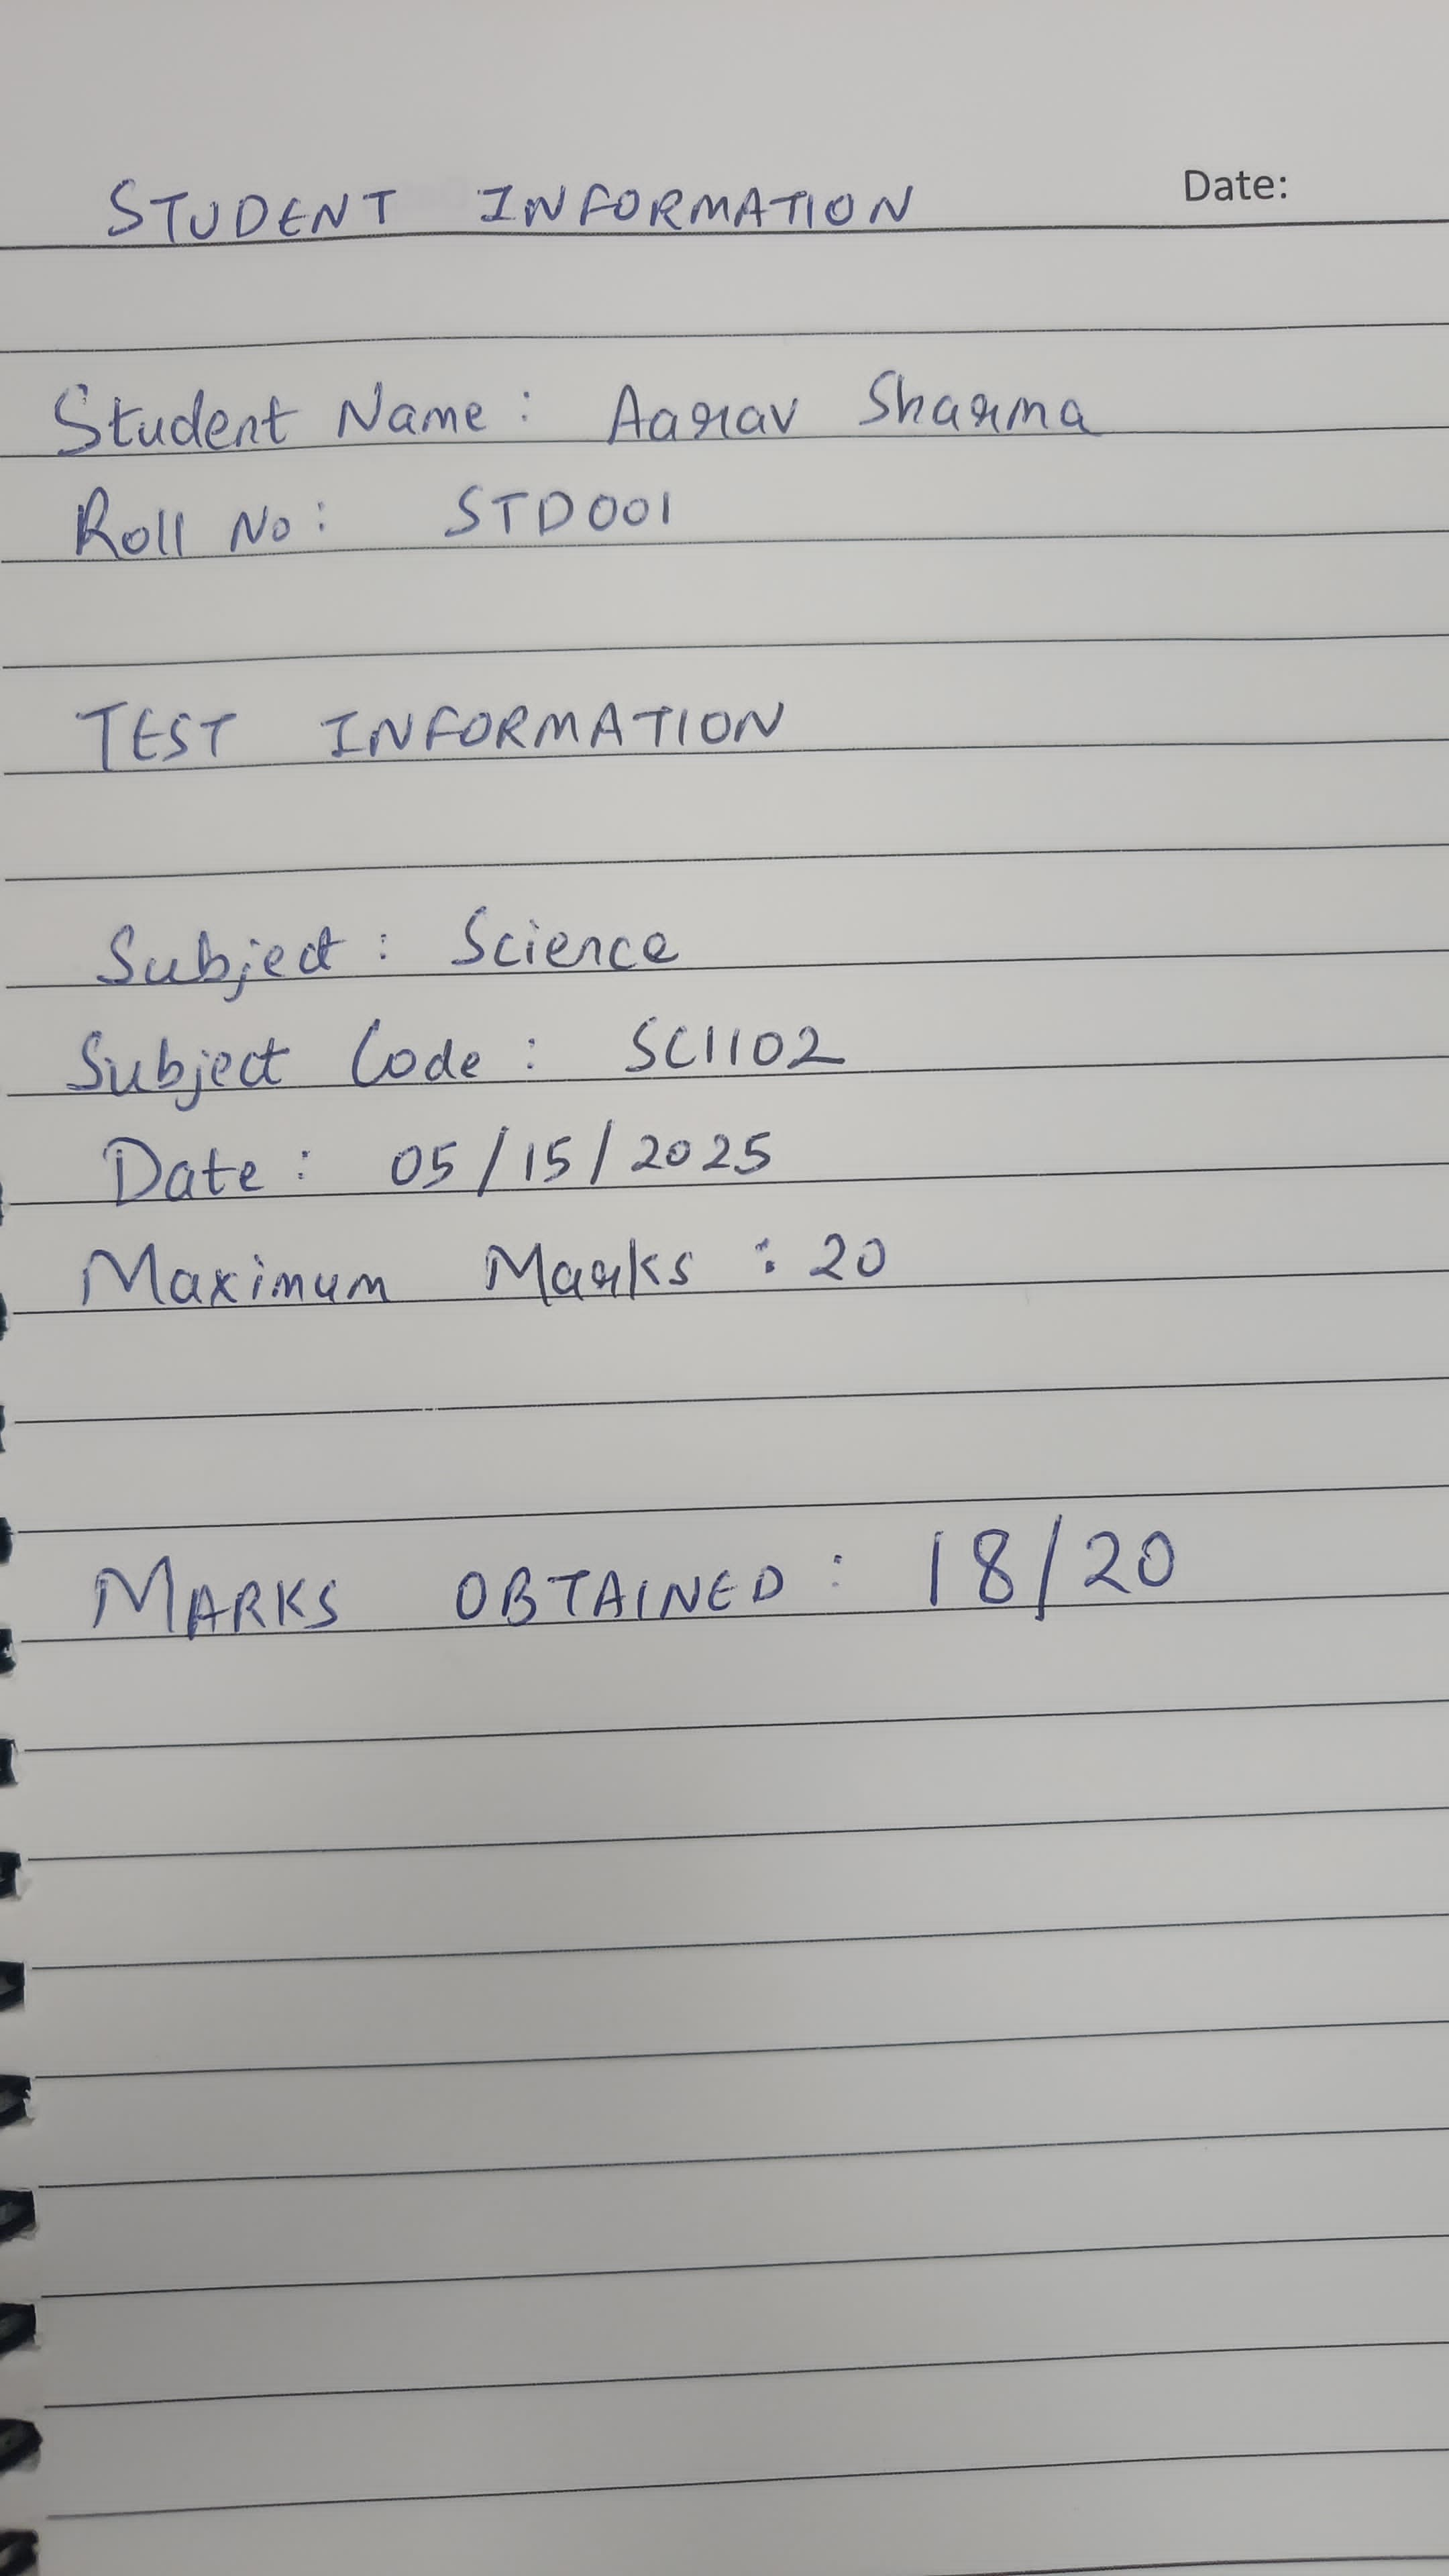 STUDENT INFORMATION Date:
Student Name : Aarav Sharma
Roll No : STD001
TEST INFORMATION
Subject : Science
Subject Code : SCI102
Date : 05/15/2025
Maximum Marks : 20
MARKS OBTAINED : 18/20